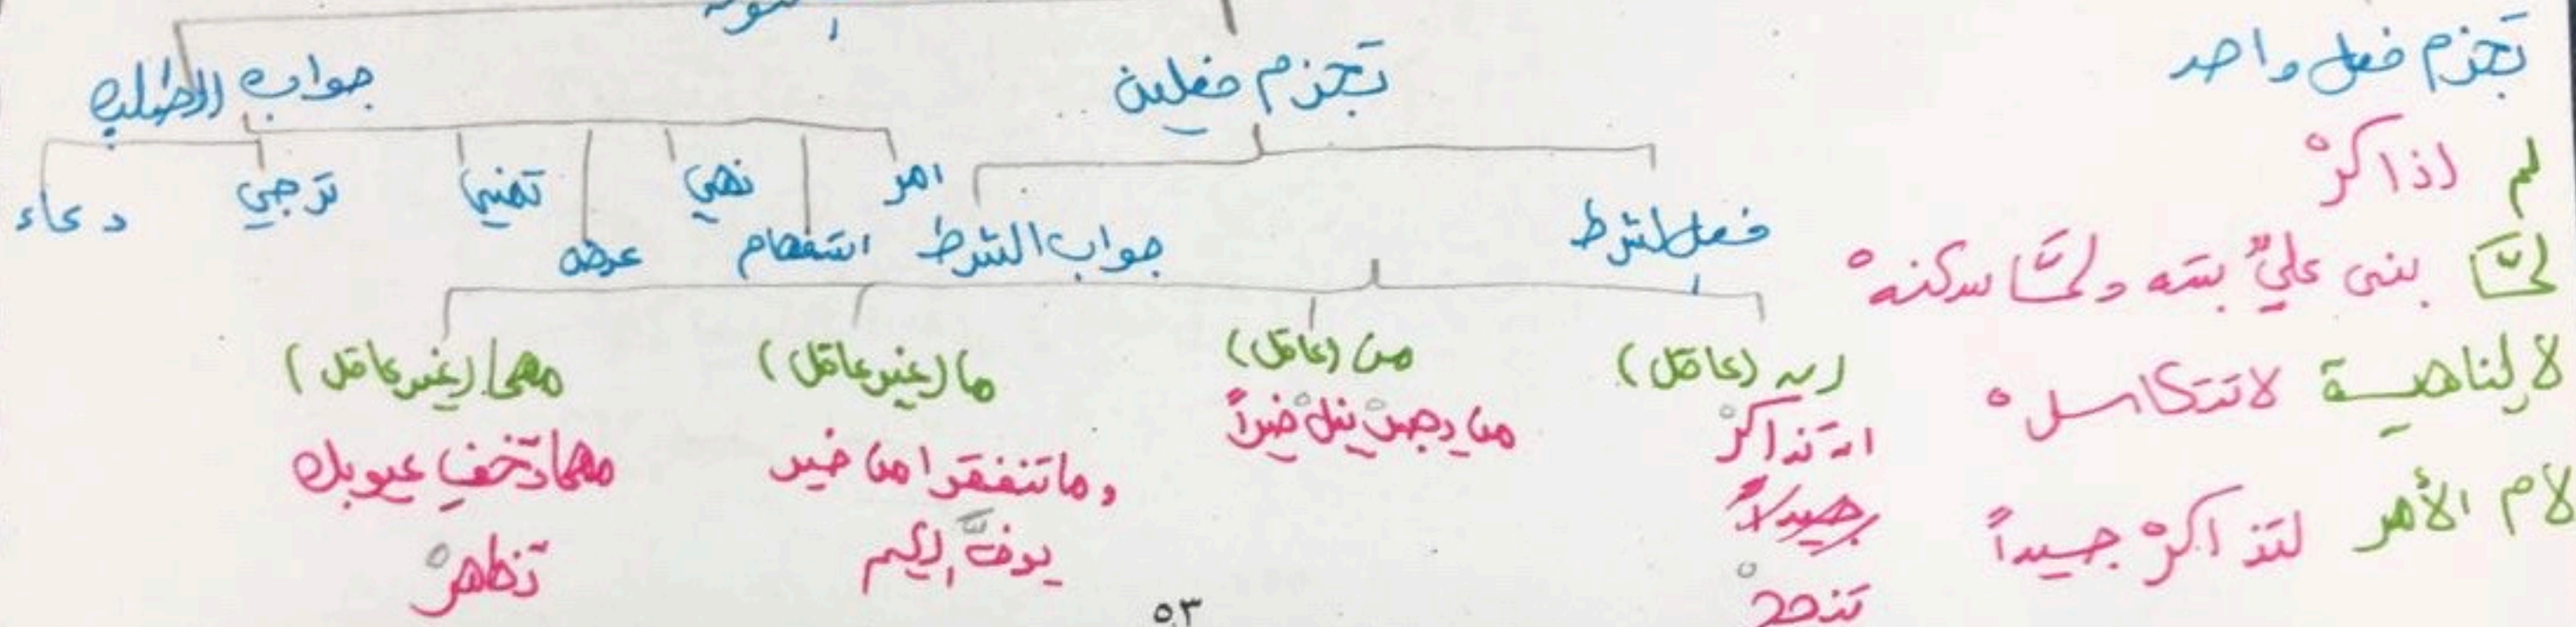 تجزم فعل واحد
لم اذاكرْ
لمَّا بنى عليٌّ بيته ولمَّا يسكنهْ
لا لناهية لا تتكاسلْ
لام الأمر لتذاكرْ جيداً
تجزم فعلين
فعل لشرط
جواب الشرط
إن (عاقل)
ان تذاكرْ
جيداً
تنجحْ
من (عاقل)
من يجهدْ ينلْ خيراً
ما (غير عاقل)
وما تنفقوا من خير
يوفَّ إليكم
مهما (غير عاقل)
مهما تخفِ عيوبك
تظهرْ
جواب الطلب
امر
استفهام
نهي
عرض
تمني
ترجي
دعاء
٥٣